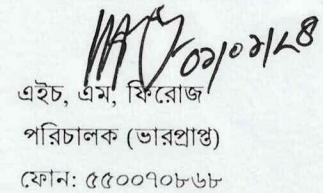 ০১/০১/২৪
এইচ, এম, ফিরোজ
পরিচালক (ভারপ্রাপ্ত)
ফোন: ৫৫০০৭০৮৬৮